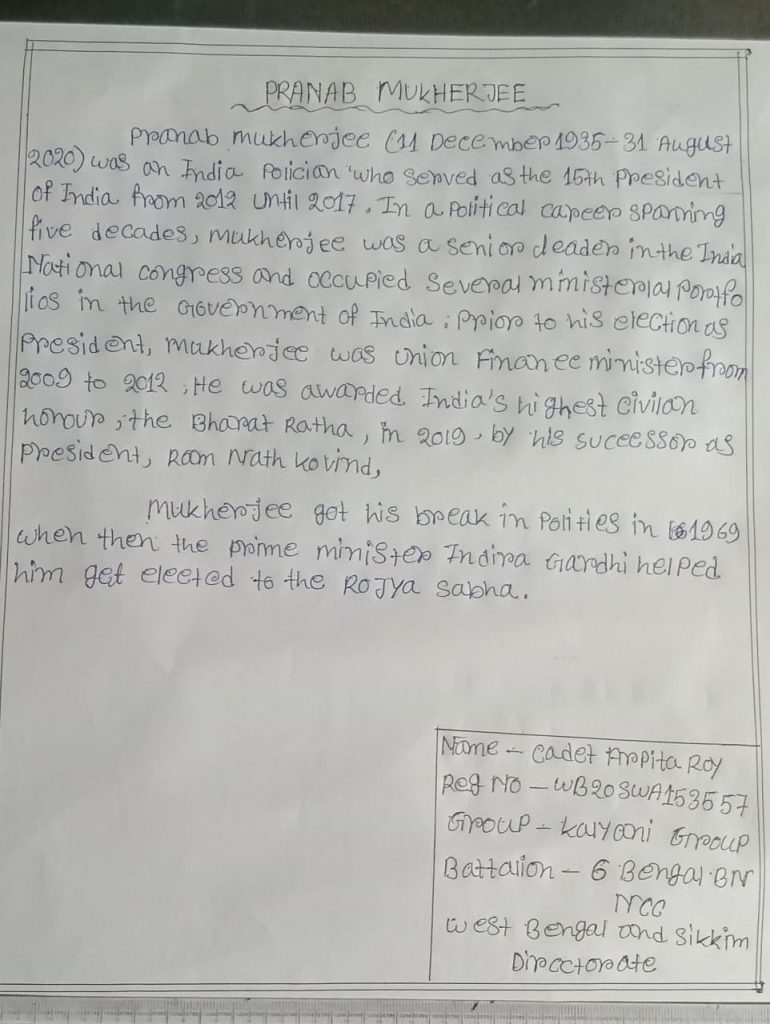 PRANAB MUKHERJEE
Pranab mukherjee (11 December 1935-31 August
2020) was an India Polician who served as the 15th President
of India from 2012 until 2017. In a Political career sparning
five decades, mukherjee was a senior leader in the India
National congress and occupied Several ministerial Portfo
lios in the Government of India ; Prior to his election as
President, mukherjee was union Finance minister from
2009 to 2012 ; He was awarded India's highest Civilan
honour ; the Bharat Ratha, in 2019, by his suceessor as
President, Ram Nath Kovind,
Mukherjee got his break in Polities in 1969
when then the prime minister Indira Gandhi helped
him get eleeted to the Rojya Sabha.
Name - Cadet Arpita Roy
Reg No - WB20SWA153557
Group - Kalyani Group
Battalion - 6 Bengal BN
NCC
West Bengal and Sikkim
Directorate